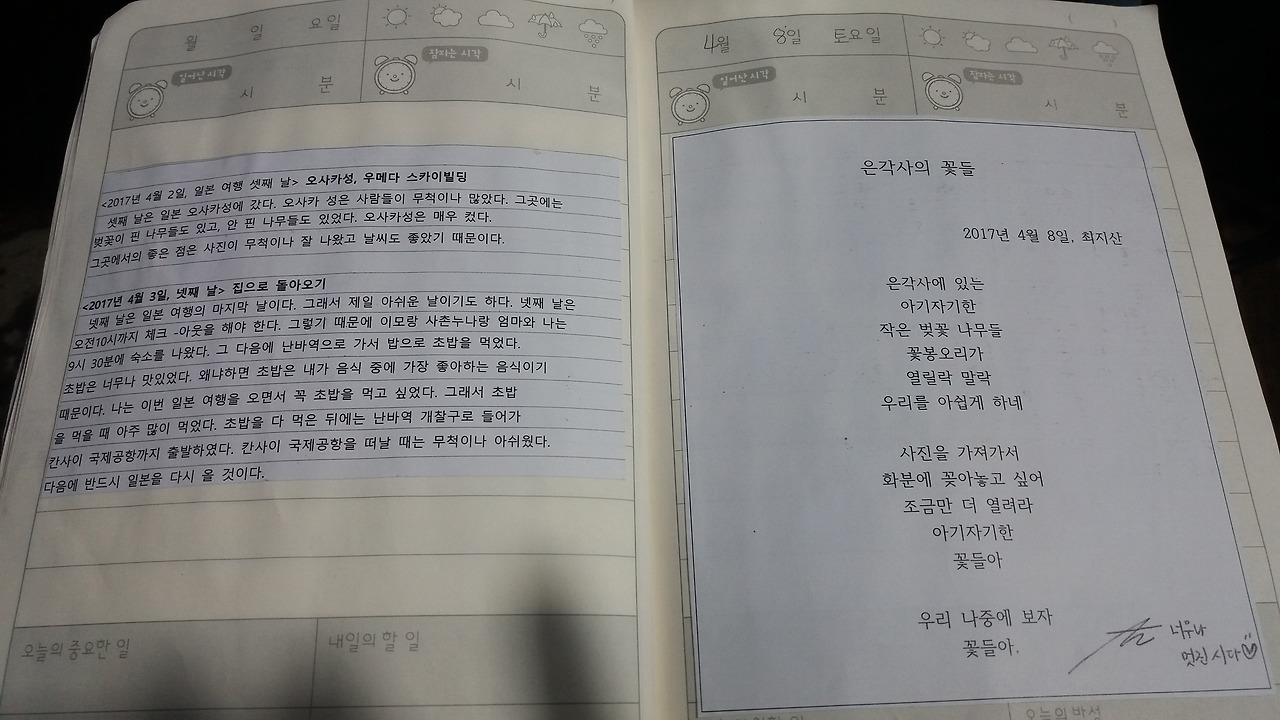 월 일 요일
일어난 시각
시 분
잠자는 시각
시 분
<2017년 4월 2일, 일본 여행 셋째 날> 오사카성, 우메다 스카이빌딩
셋째 날은 일본 오사카성에 갔다. 오사카 성은 사람들이 무척이나 많았다. 그곳에는
벚꽃이 핀 나무들도 있고, 안 핀 나무들도 있었다. 오사카성은 매우 컸다.
그곳에서의 좋은 점은 사진이 무척이나 잘 나왔고 날씨도 좋았기 때문이다.
<2017년 4월 3일, 넷째 날> 집으로 돌아오기
넷째 날은 일본 여행의 마지막 날이다. 그래서 제일 아쉬운 날이기도 하다. 넷째 날은
오전10시까지 체크 -아웃을 해야 한다. 그렇기 때문에 이모랑 사촌누나랑 엄마와 나는
9시 30분에 숙소를 나왔다. 그 다음에 난바역으로 가서 밥으로 초밥을 먹었다.
초밥은 너무나 맛있었다. 왜냐하면 초밥은 내가 음식 중에 가장 좋아하는 음식이기
때문이다. 나는 이번 일본 여행을 오면서 꼭 초밥을 먹고 싶었다. 그래서 초밥
을 먹을 때 아주 많이 먹었다. 초밥을 다 먹은 뒤에는 난바역 개찰구로 들어가
칸사이 국제공항까지 출발하였다. 칸사이 국제공항을 떠날 때는 무척이나 아쉬웠다.
다음에 반드시 일본을 다시 올 것이다.
오늘의 중요한 일
내일의 할 일
4월 8일 토요일
일어난 시각
시 분
잠자는 시각
시 분
은각사의 꽃들
2017년 4월 8일, 최지산
은각사에 있는
아기자기한
작은 벚꽃 나무들
꽃봉오리가
열릴락 말락
우리를 아쉽게 하네
사진을 가져가서
화분에 꽂아놓고 싶어
조금만 더 열려라
아기자기한
꽃들아
우리 나중에 보자
꽃들아.
너무나
멋진 시다
오늘의 반성